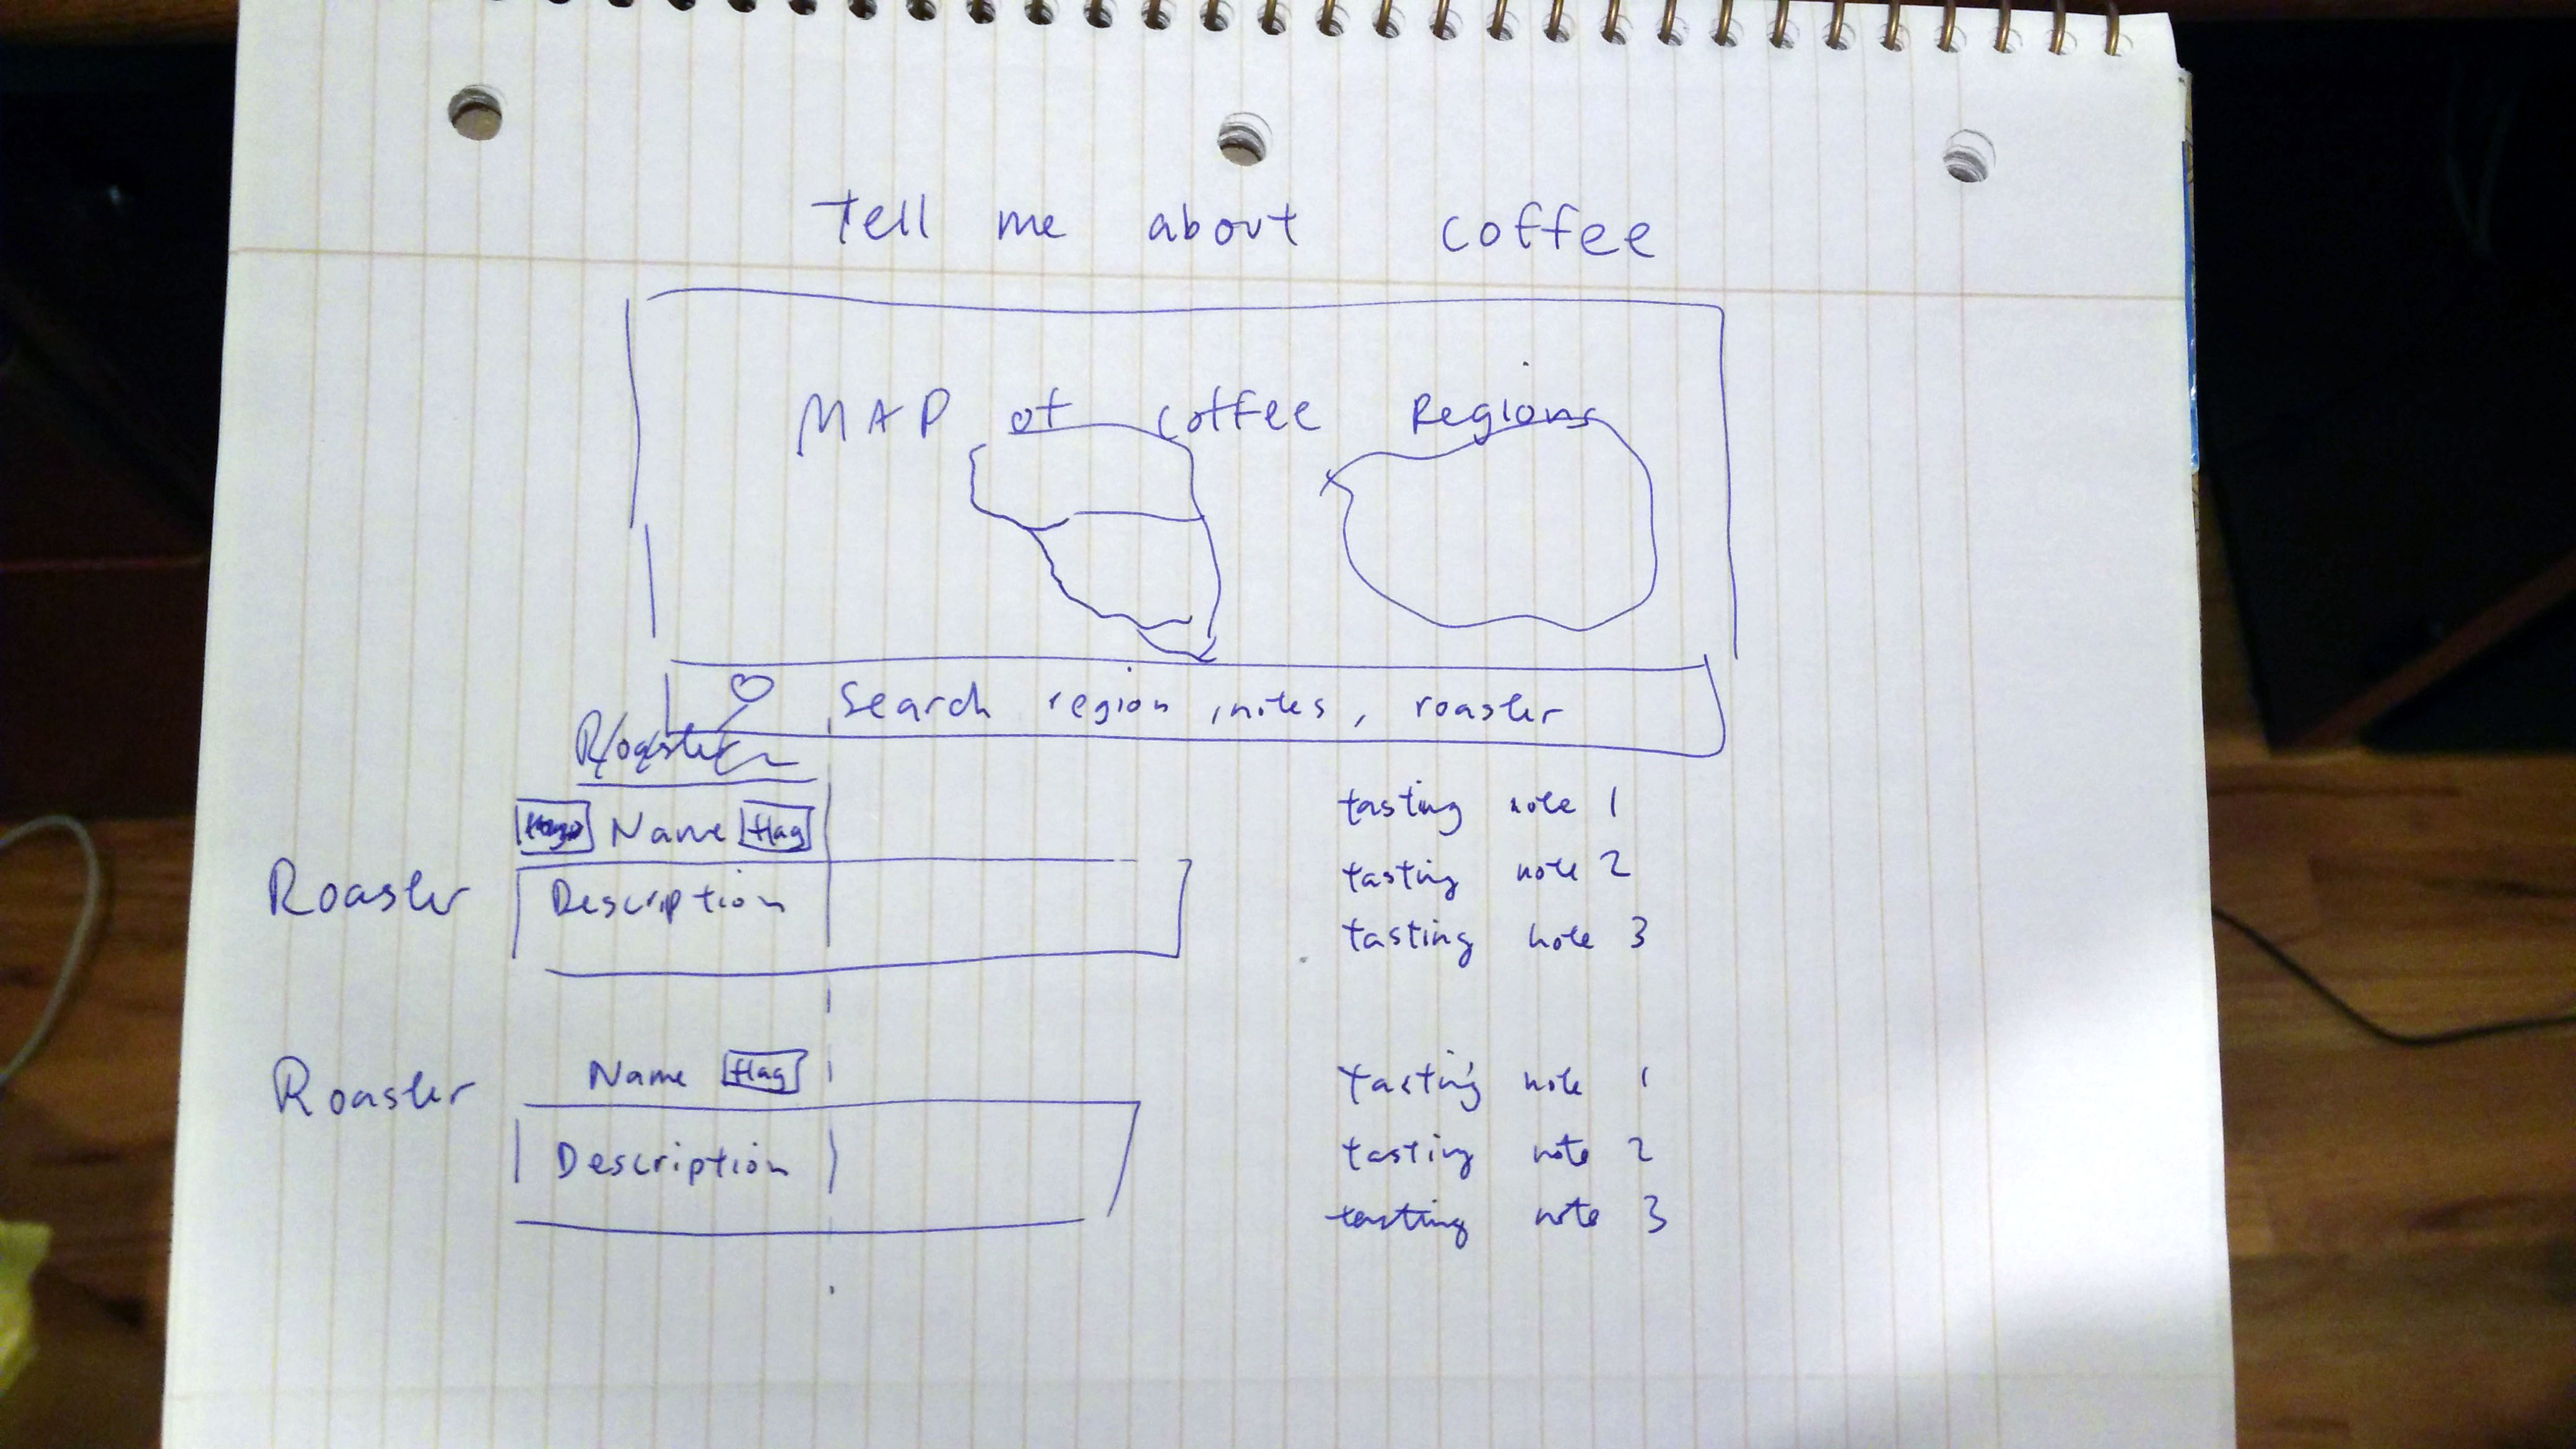 tell me about coffee
MAP of coffee Regions
Search region, notes, roaster
Roaster
Name flag
Roaster Description
tasting note 1
tasting note 2
tasting note 3
Roaster Name flag
Description
tasting note 1
tasting note 2
tasting note 3